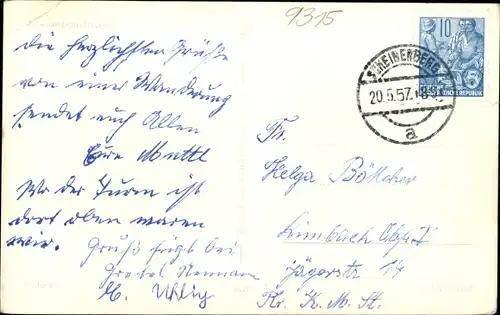 9315
die herzlichsten Grüße
von einer Wanderung
sendet euch Allen
Eure Mutti
Wo der Turm ist
dort oben waren
wir.
Gruß fügt bei
Gretel Neumann
M. Uhlig
10
SCHEIBENBERG
20.5.57
a
5
Fr.
Helga Böttcher
Limbach
Jägerstr 14
Kr. K. M. St.